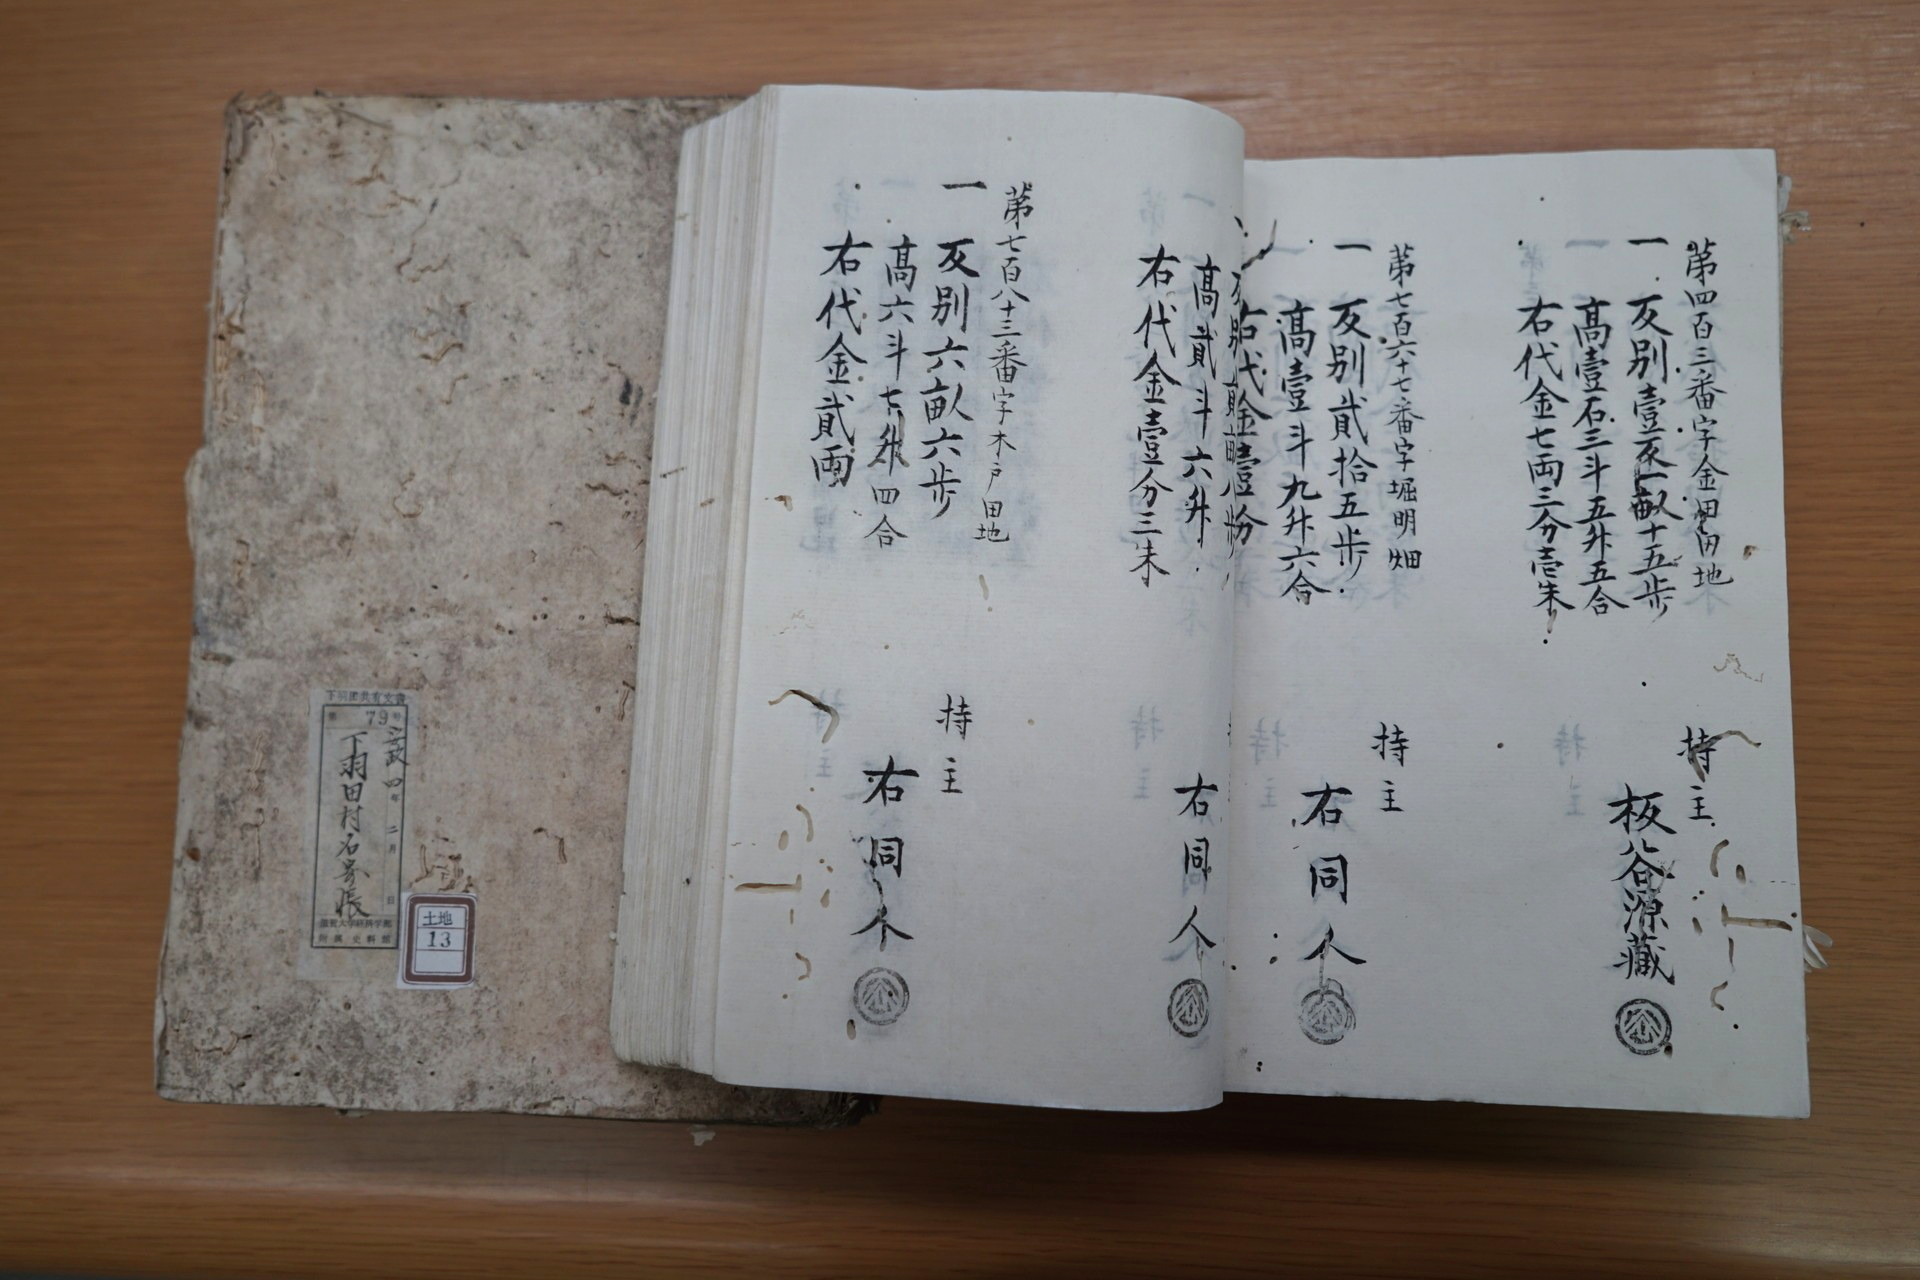 第四百三番字金田田地
一 反別壹反一畝十五歩
高壹石三斗五升五合
右代金七両三分壱朱
持主
板谷源藏
第七百六十七番字堀明畑
一 反別貳拾五歩
高壹斗九升六合
右代金壹分
持主
右同人
高貳斗六升
右代金壹分三朱
右同人
第七百八十三番字木戸田地
一 反別六畝六歩
高六斗七升四合
右代金貳両
持主
右同人
79
安政四年二月 日
下羽田村名寄帳
附属史料館
土地
13